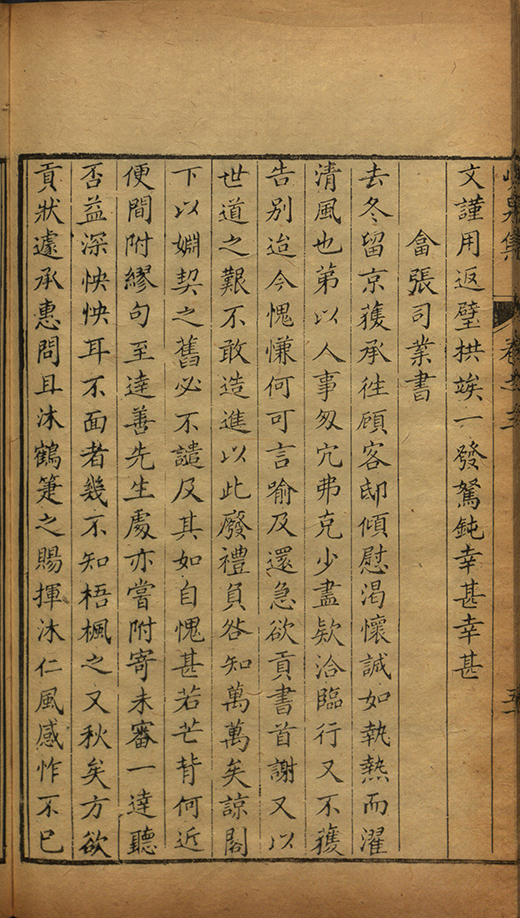 文謹用返璧拱竢一發駑鈍幸甚幸甚
畣張司業書
去冬留京獲承徃顧客邸傾慰渴懷誠如執熱而濯
清風也弟以人事匆宂弗克少盡欵洽臨行又不獲
告别迨今愧慊何可言喻及還急欲貢書首謝又以
世道之艱不敢造進以此廢禮負咎知萬萬矣諒閣
下以婣契之舊必不譴及其如自愧甚若芒背何近
便間附繆句至達善先生處亦嘗附寄未審一達聽
否益深怏怏耳不面者幾不知梧楓之又秋矣方欲
貢狀遽承惠問且沐鶴箑之賜揮沐仁風感怍不已